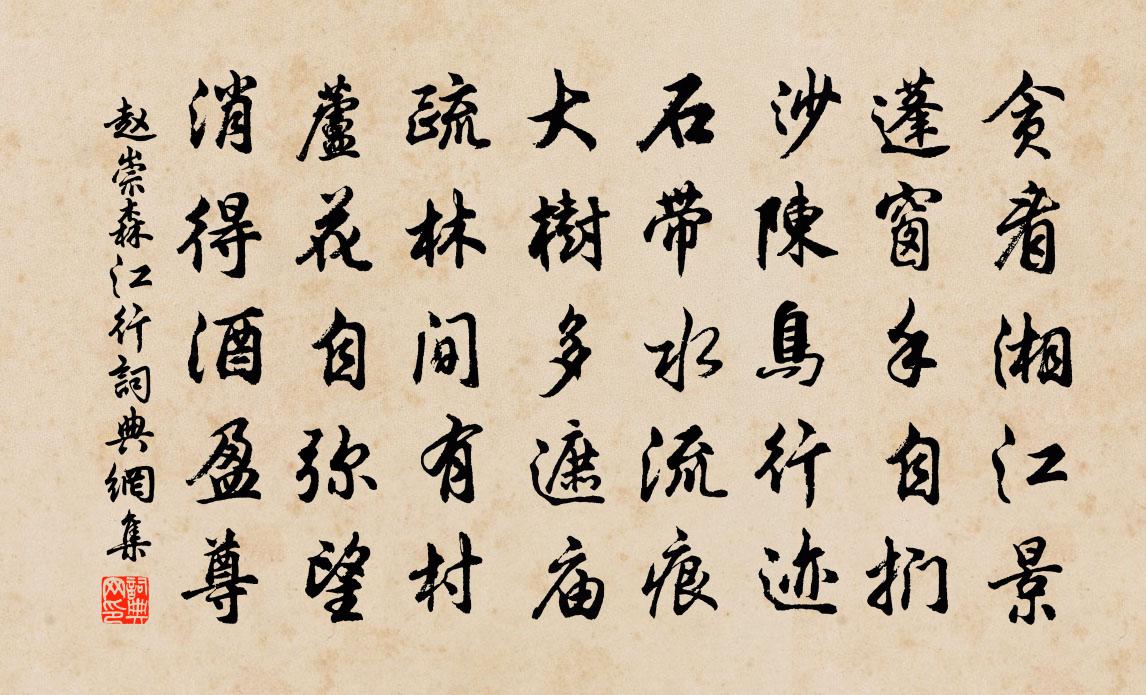 贪看湘江景
蓬窗手自捫
沙陳鳥行迹
石带水流痕
大樹多遮庙
疏林间有村
蘆花自弥望
消得酒盈尊
赵崇森江行詞典網集
詞典网印